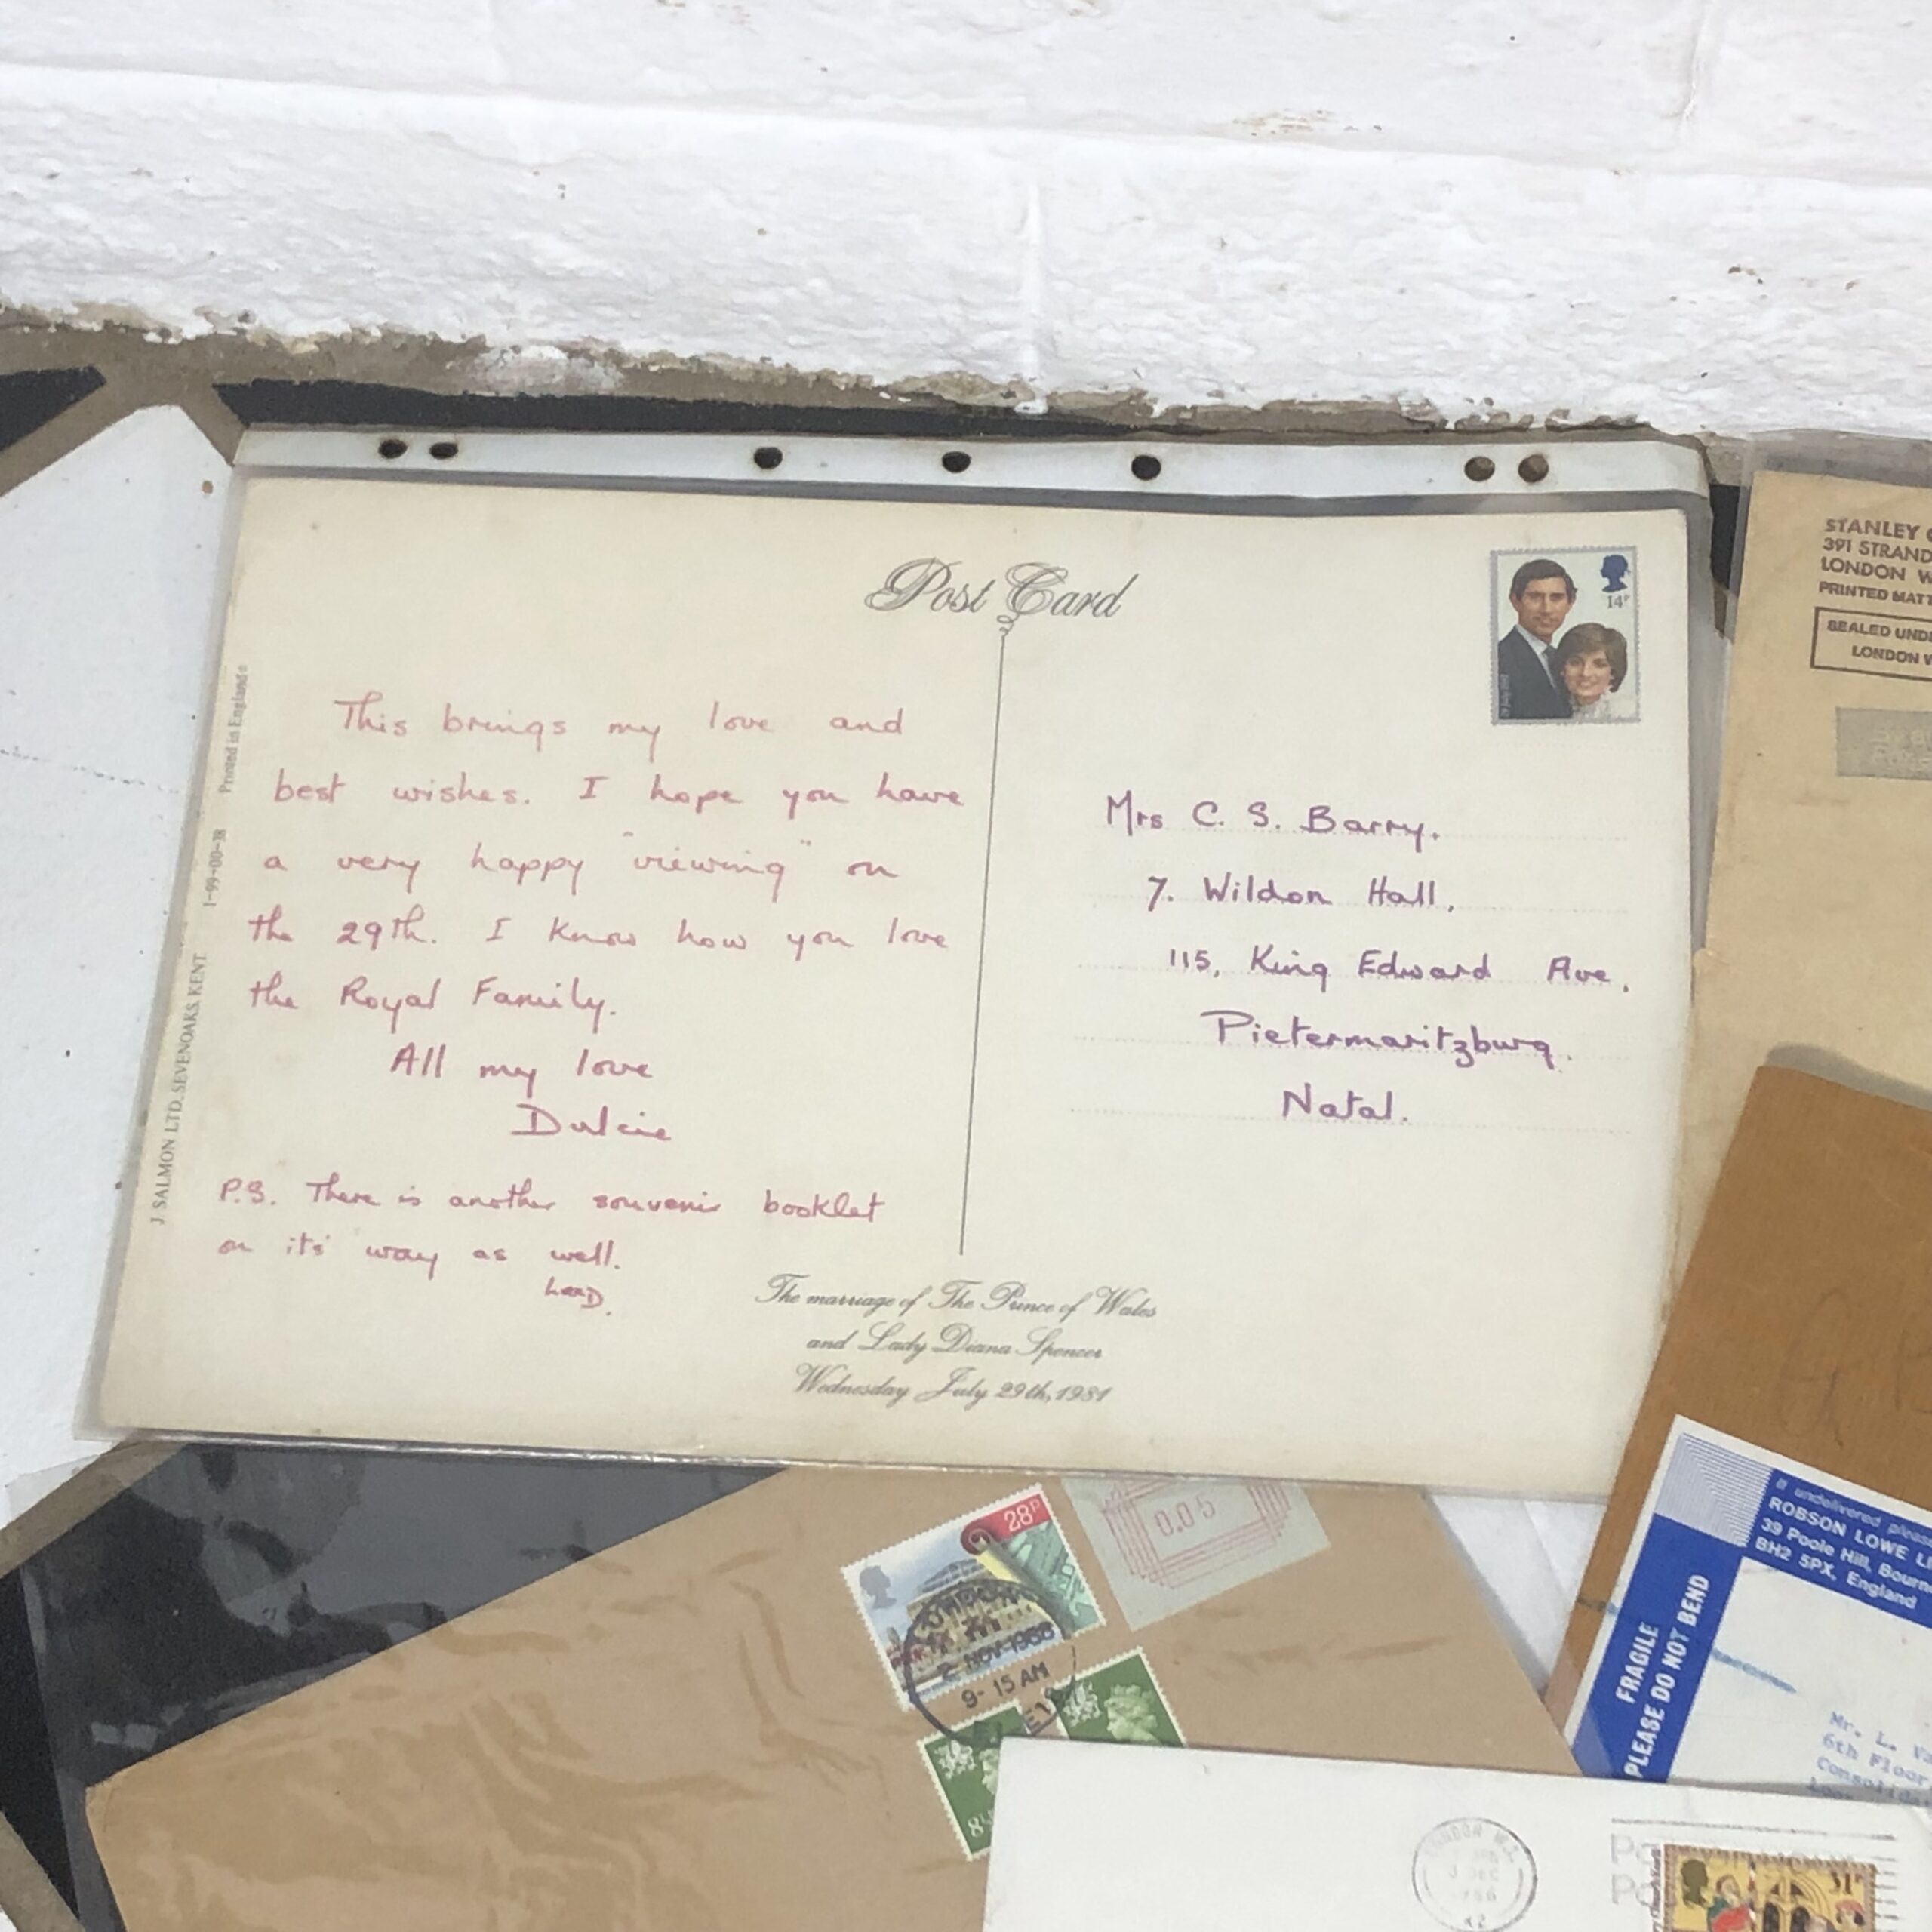 Post Card
14P
This brings my love and
best wishes. I hope you have
a very happy "viewing" on
the 29th. I know how you love
the Royal Family.
All my love
Dulcie
P.S. There is another souvenir booklet
on its' way as well.
Mrs C. S. Barry.
7. Wildon Hall,
115, King Edward Ave,
Pietermaritzburg.
Natal.
The marriage of The Prince of Wales
and Lady Diana Spencer
Wednesday July 29th, 1981
J. SALMON LTD. SEVENOAKS. KENT
1-99-00-38
Printed in England
STANLEY
391 STRAND
LONDON W
PRINTED MATT
SEALED UNDE
LONDON W
28P
0.05
2 NOV 1988
9-15 AM
8
If undelivered please
ROBSON LOWE
39 Poole Hill, Bourn
BH2 5PX, England
FRAGILE
PLEASE DO NOT BEND
Mr. L.
6th Floor
LONDON W.
31P